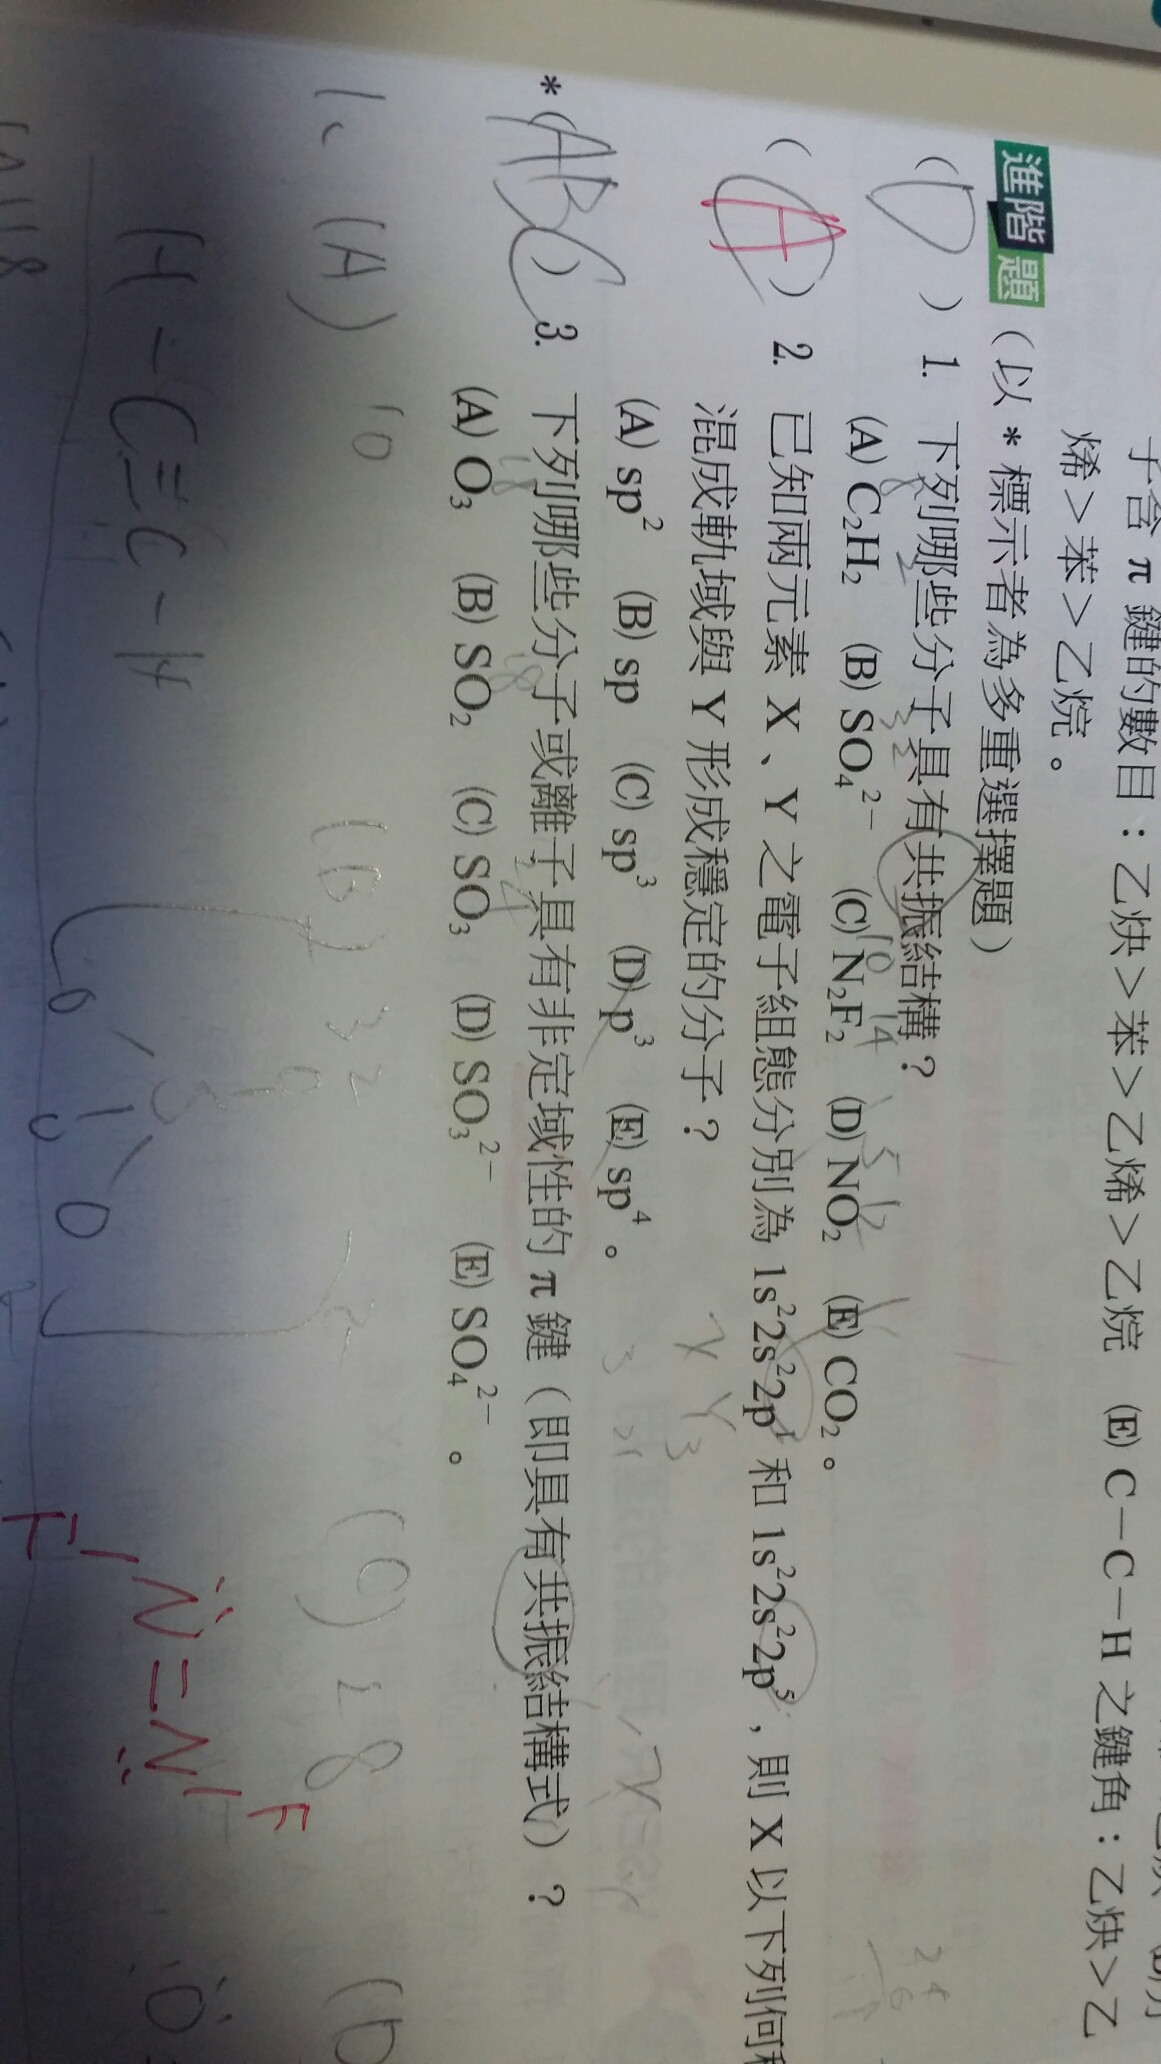 子含 π 鍵的數目：乙炔＞苯＞乙烯＞乙烷 (E) C－C－H 之鍵角：乙炔＞乙
烯＞苯＞乙烷。
進階題（以 * 標示者為多重選擇題）
( D ) 1. 下列哪些分子具有共振結構？
(A) C₂H₂ (B) SO₄²⁻ (C) N₂F₂ (D) NO₂ (E) CO₂。
( A ) 2. 已知兩元素 X、Y 之電子組態分別為 1s²2s²2p¹ 和 1s²2s²2p⁵，則 X 以下列何種
混成軌域與 Y 形成穩定的分子？
(A) sp² (B) sp (C) sp³ (D) p³ (E) sp⁴。
*( ABC ) 3. 下列哪些分子或離子具有非定域性的 π 鍵（即具有共振結構式）？
(A) O₃ (B) SO₂ (C) SO₃ (D) SO₃²⁻ (E) SO₄²⁻。
X Y₃
1、(A) 10 (B) 32 (C) 28 (D
H－C≡C－H
F N=N F